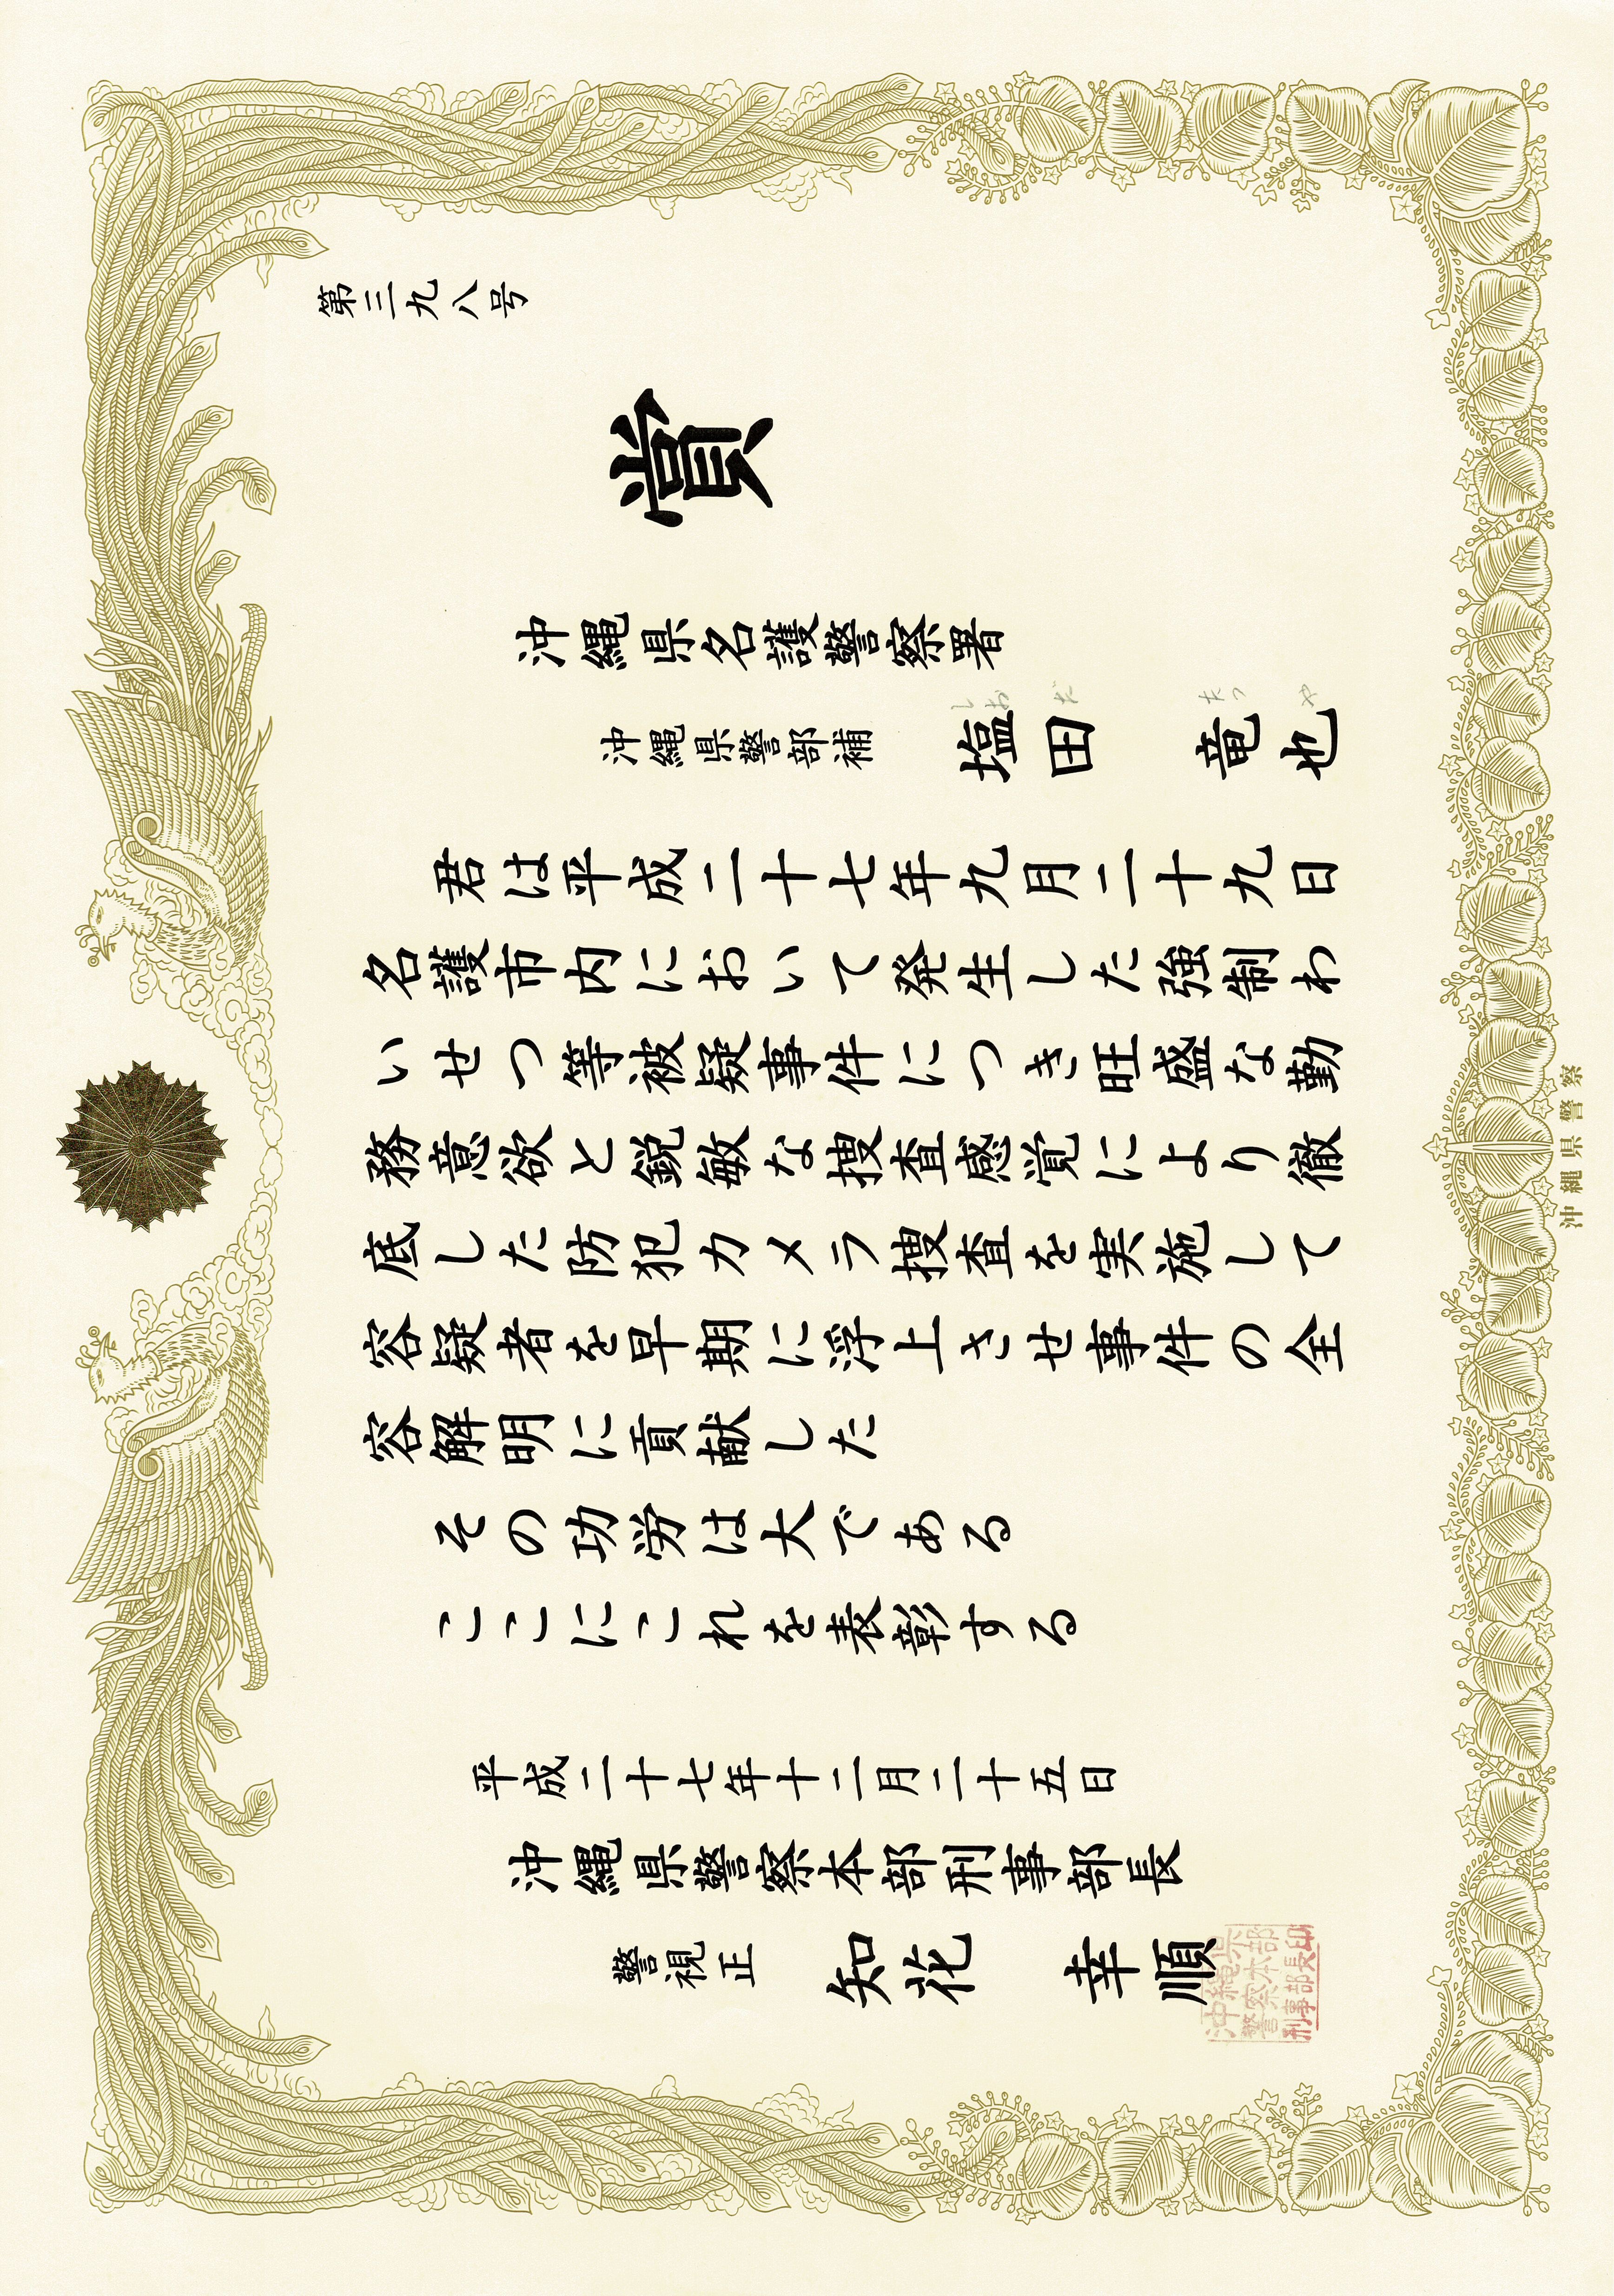 第三九八号
賞
沖縄県名護警察署
沖縄県警部補 塩田 竜也
しお だ たつ や
君は平成二十七年九月二十九日
名護市内において発生した強制わ
いせつ等被疑事件につき旺盛な勤
務意欲と鋭敏な捜査感覚により徹
底した防犯カメラ捜査を実施して
容疑者を早期に浮上させ事件の全
容解明に貢献した
その功労は大である
ここにこれを表彰する
平成二十七年十二月二十五日
沖縄県警察本部刑事部長
警視正 知花 幸順
沖縄県
警察本部
刑事部長印
沖縄県警察